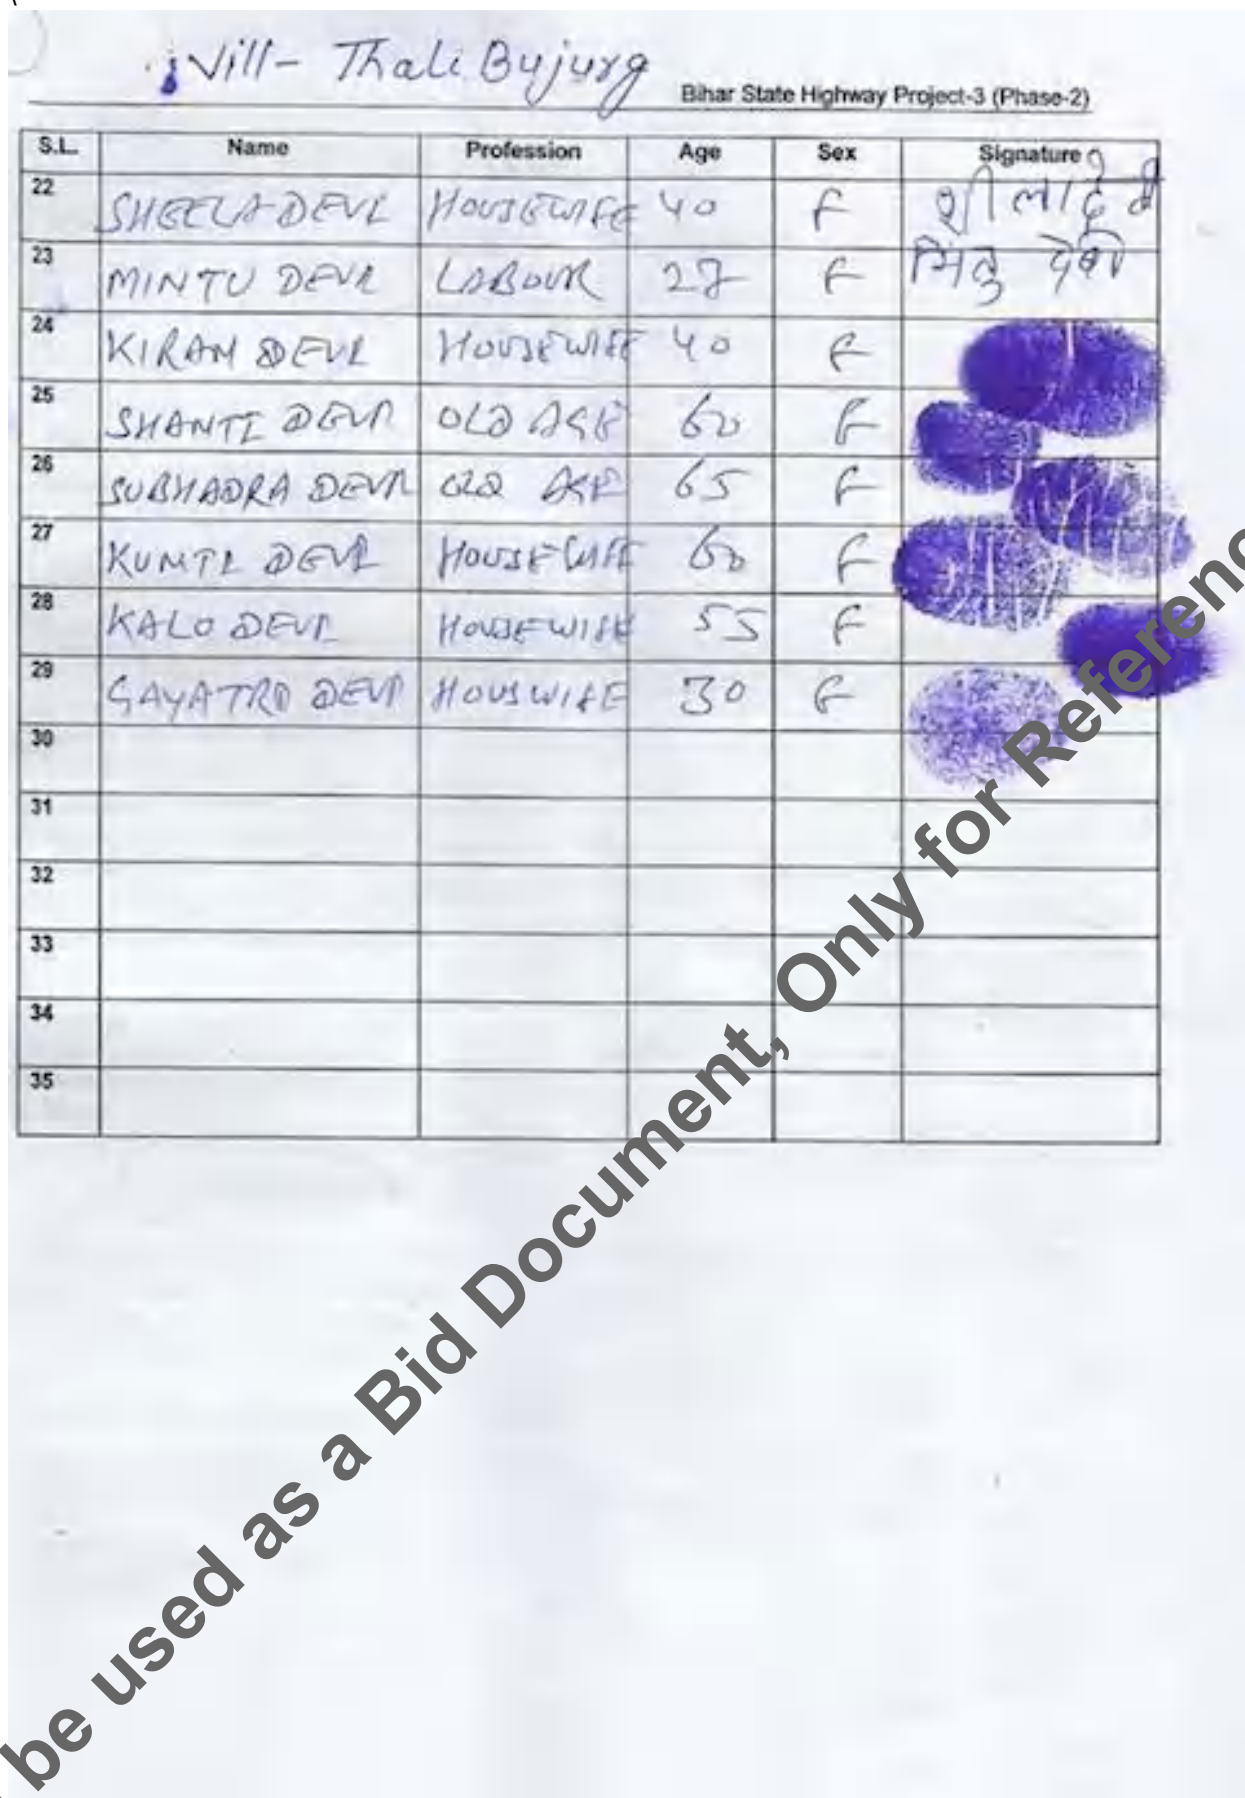 Vill- Thali Bujurg
Bihar State Highway Project-3 (Phase-2)
S.L. Name Profession Age Sex Signature
22 SHEELA DEVI HOUSEWIFE 40 F शीला देवी
23 MINTU DEVI LABOUR 27 F मिंतु देवी
24 KIRAN DEVI HOUSEWIFE 40 F
25 SHANTI DEVI OLD AGE 60 F
26 SUBHADRA DEVI OLD AGE 65 F
27 KUNTI DEVI HOUSEWIFE 60 F
28 KALO DEVI HOUSEWIFE 55 F
29 GAYATRI DEVI HOUSWIFE 30 F
30
31
32
33
34
35
be used as a Bid Document, Only for